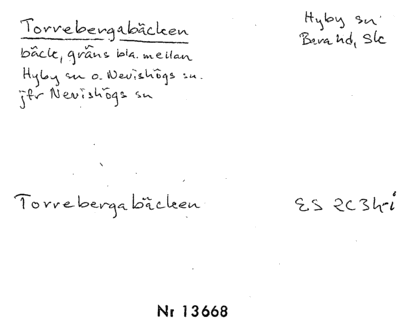 Torrebergabäcken
Hyby sn
Bara hd, Sk
bäck, gräns bl.a. mellan
Hyby sn o. Nevishögs sn.
jfr Nevishögs sn
Torrebergabäcken
ES 2C3h-i
Nr 13668